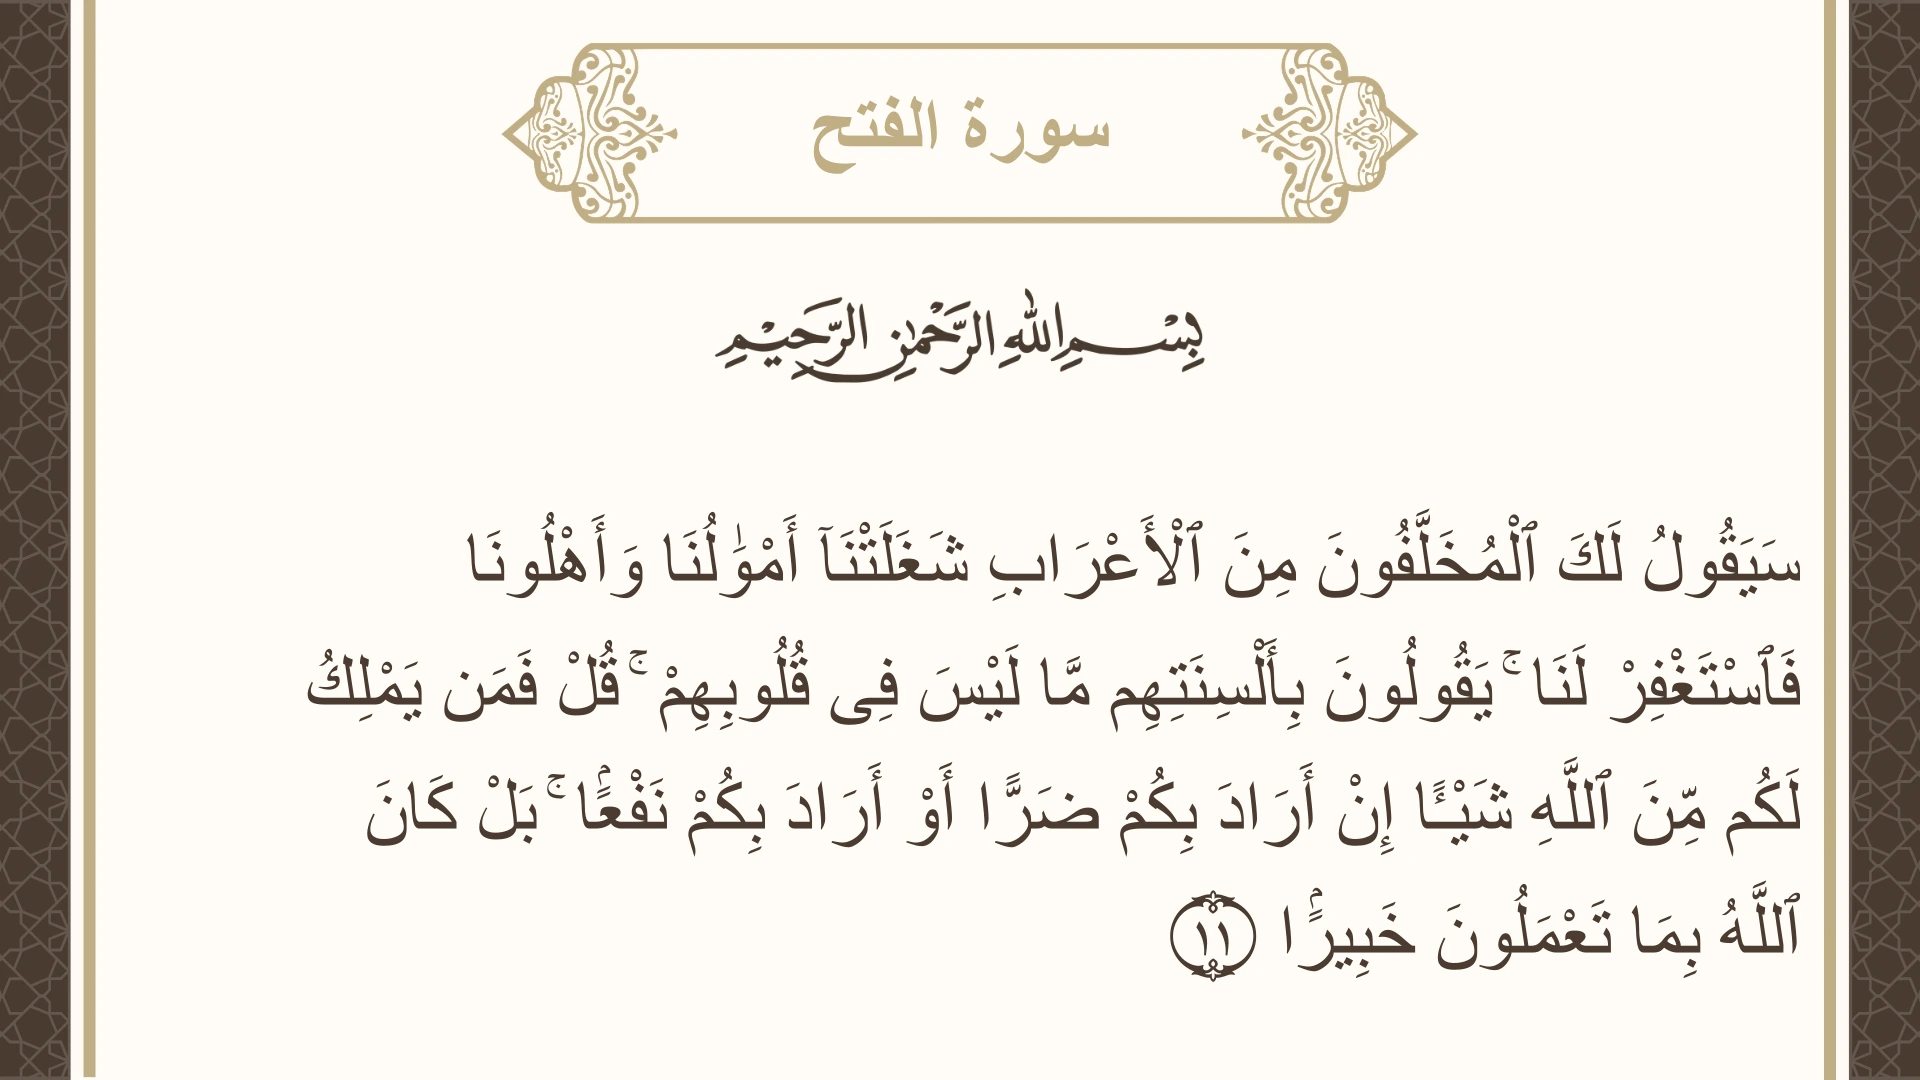 سورة الفتح
بِسْمِ اللهِ الرَّحْمٰنِ الرَّحِيْمِ
سَيَقُولُ لَكَ ٱلْمُخَلَّفُونَ مِنَ ٱلْأَعْرَابِ شَغَلَتْنَآ أَمْوَٰلُنَا وَأَهْلُونَا
فَٱسْتَغْفِرْ لَنَا ۚ يَقُولُونَ بِأَلْسِنَتِهِم مَّا لَيْسَ فِى قُلُوبِهِمْ ۚ قُلْ فَمَن يَمْلِكُ
لَكُم مِّنَ ٱللَّهِ شَيْـًٔا إِنْ أَرَادَ بِكُمْ ضَرًّا أَوْ أَرَادَ بِكُمْ نَفْعًۢا ۚ بَلْ كَانَ
ٱللَّهُ بِمَا تَعْمَلُونَ خَبِيرًۢا ١١